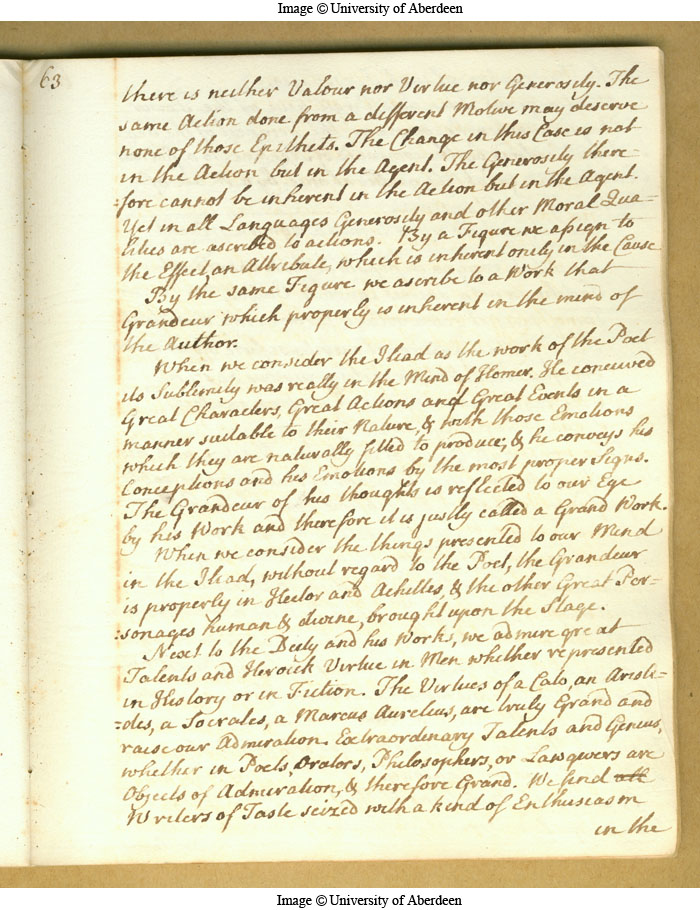 Image © University of Aberdeen
63
there is neither Valour nor Virtue nor Generosity. The
same Action done from a different Motive may deserve
none of those Epithets. The Change in this Case is not
in the Action but in the Agent. The Generosity there
:fore cannot be inherent in the Action but in the Agent.
Yet in all Languages Generosity and other Moral Qua=
lities are ascribed to actions. By a Figure we assign to
the Effect, an Attribute, which is inherent only in the Cause
By the same Figure we ascribe to a Work that
Grandeur which properly is inherent in the mind of
the Author.
When we consider the Iliad as the work of the Poet
its Sublimity was really in the Mind of Homer. He conceived
Great Characters, Great Actions and Great Events in a
manner suitable to their Nature, & with those Emotions
which they are naturally fitted to produce; & he conveys his
Conceptions and his Emotions by the most proper Signs.
The Grandeur of his thoughts is reflected to our Eye
by his Work and therefore it is justly called a Grand Work.
When we consider the things presented to our Mind
in the Iliad, without regard to the Poet, the Grandeur
is properly in Hector and Achilles, & the other Great Per=
:sonages human & divine, brought upon the Stage.
Next to the Deity and his Works, we admire great
Talents and Heroick Virtue in Men whether represented
in History or in Fiction. The Virtues of a Cato, an Aristi=
=des, a Socrates, a Marcus Aurelius, are truly Grand and
raise our Admiration. Extraordinary Talents and Genius,
whether in Poets, Orators, Philosophers, or Lawgivers are
Objects of Admiration, & therefore Grand. We find all
Writers of Taste seized with a kind of Enthusiasm
in the
Image © University of Aberdeen